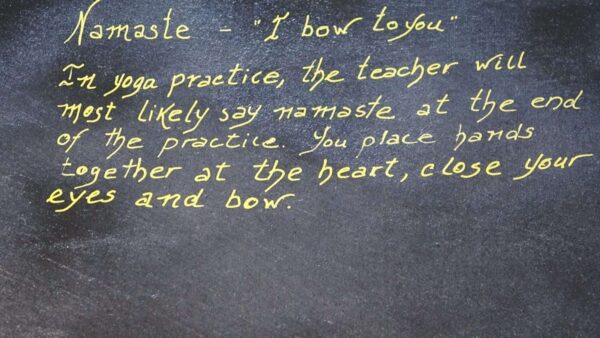 Namaste - "I bow to you"
In yoga practice, the teacher will
most likely say namaste at the end
of the practice. You place hands
together at the heart, close your
eyes and bow.